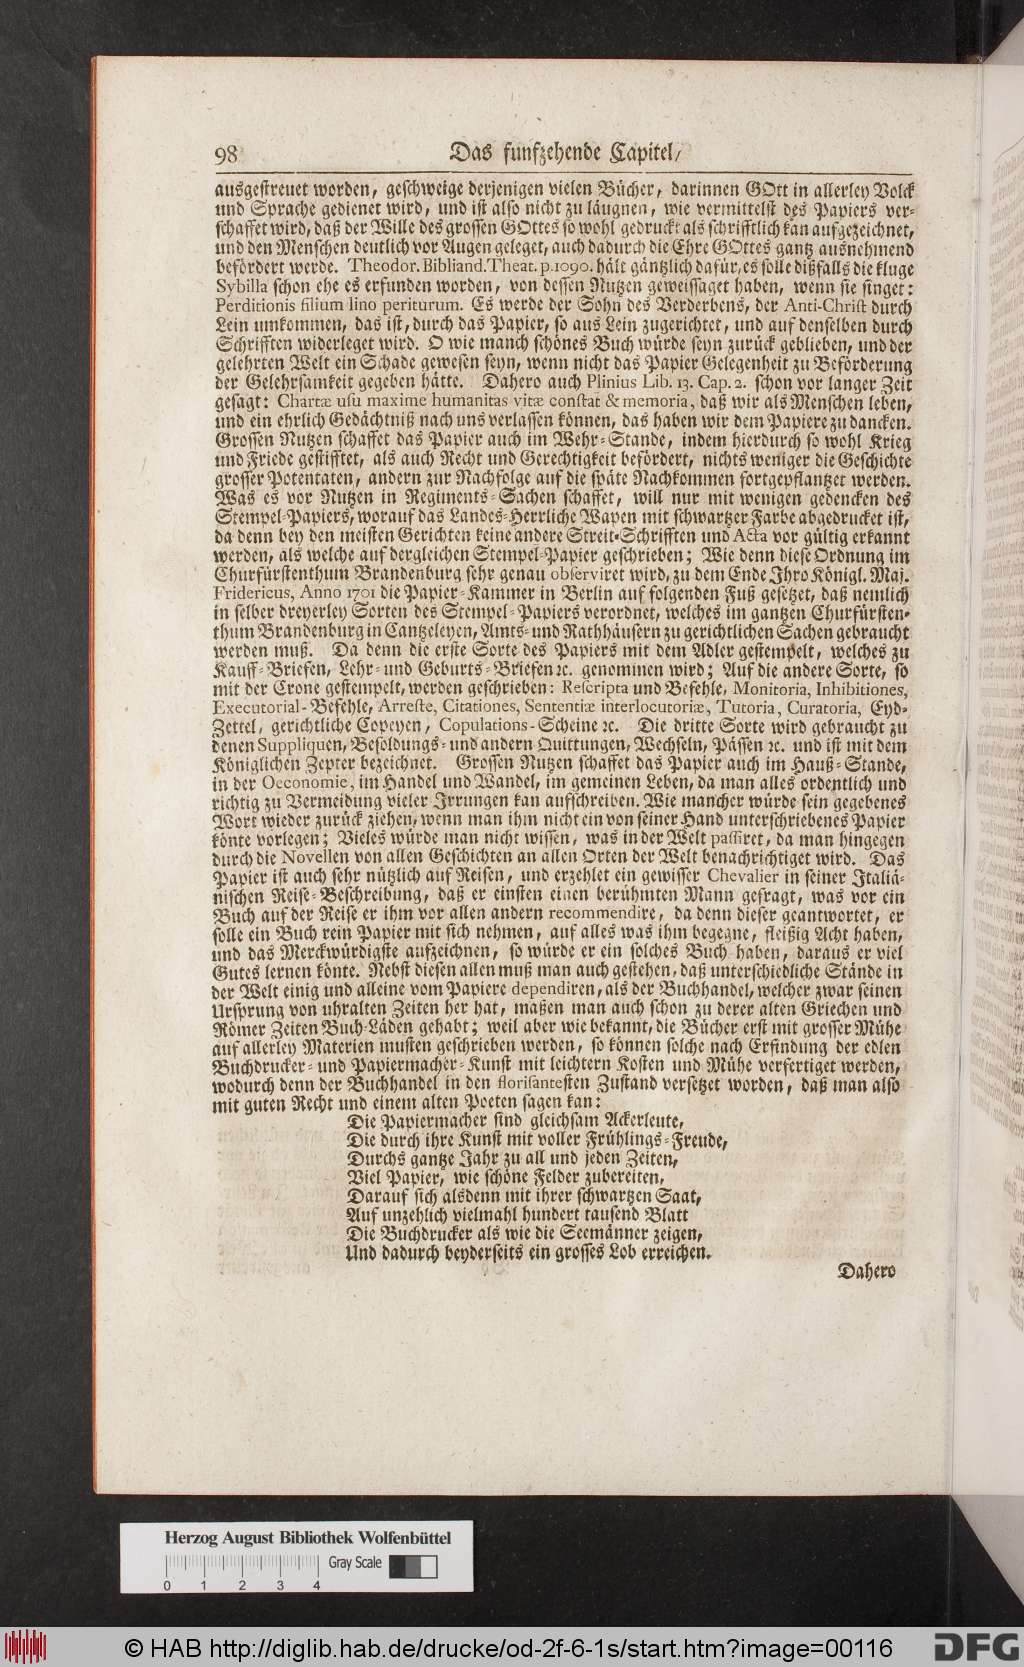 98 Das funfzehende Capitel/
ausgestreuet worden, geschweige derjenigen vielen Bücher, darinnen GOtt in allerley Volck
und Sprache gedienet wird, und ist also nicht zu läugnen, wie vermittelst des Papiers ver-
schaffet wird, daß der Wille des grossen GOttes so wohl gedruckt als schrifftlich kan aufgezeichnet,
und den Menschen deutlich vor Augen geleget, auch dadurch die Ehre GOttes gantz ausnehmend
befördert werde. Theodor. Bibliand. Theat. p. 1090. hält gäntzlich dafür, es solle dißfalls die kluge
Sybilla schon ehe es erfunden worden, von dessen Nutzen geweissaget haben, wenn sie singet:
Perditionis filium lino periturum. Es werde der Sohn des Verderbens, der Anti-Christ durch
Lein umkommen, das ist, durch das Papier, so aus Lein zugerichtet, und auf denselben durch
Schrifften widerleget wird. O wie manch schönes Buch würde seyn zurück geblieben, und der
gelehrten Welt ein Schade gewesen seyn, wenn nicht das Papier Gelegenheit zu Beförderung
der Gelehrsamkeit gegeben hätte. Dahero auch Plinius Lib. 13. Cap. 2. schon vor langer Zeit
gesagt: Chartæ usu maxime humanitas vitæ constat & memoria, daß wir als Menschen leben,
und ein ehrlich Gedächtniß nach uns verlassen können, das haben wir dem Papiere zu dancken.
Grossen Nutzen schaffet das Papier auch im Wehr-Stande, indem hierdurch so wohl Krieg
und Friede gestifftet, als auch Recht und Gerechtigkeit befördert, nichts weniger die Geschichte
grosser Potentaten, andern zur Nachfolge auf die späte Nachkommen fortgepflantzet werden.
Was es vor Nutzen in Regiments-Sachen schaffet, will nur mit wenigen gedencken des
Stempel-Papiers, worauf das Landes-Herrliche Wapen mit schwartzer Farbe abgedrucket ist,
da denn bey den meisten Gerichten keine andere Streit-Schrifften und Acta vor gültig erkannt
werden, als welche auf dergleichen Stempel-Papier geschrieben; Wie denn diese Ordnung im
Churfürstenthum Brandenburg sehr genau observiret wird, zu dem Ende Ihro Königl. Maj.
Fridericus, Anno 1701 die Papier-Kammer in Berlin auf folgenden Fuß gesetzet, daß nemlich
in selber dreyerley Sorten des Stempel-Papiers verordnet, welches im gantzen Churfürsten-
thum Brandenburg in Cantzeleyen, Amts- und Rathhäusern zu gerichtlichen Sachen gebraucht
werden muß. Da denn die erste Sorte des Papiers mit dem Adler gestempelt, welches zu
Kauff-Briefen, Lehr- und Geburts-Briefen ꝛc. genommen wird; Auf die andere Sorte, so
mit der Crone gestempelt, werden geschrieben: Rescripta und Befehle, Monitoria, Inhibitiones,
Executorial-Befehle, Arreste, Citationes, Sententiæ interlocutoriæ, Tutoria, Curatoria, Eyd-
Zettel, gerichtliche Copeyen, Copulations-Scheine ꝛc. Die dritte Sorte wird gebraucht zu
denen Suppliquen, Besoldungs- und andern Quittungen, Wechseln, Pässen ꝛc. und ist mit dem
Königlichen Zepter bezeichnet. Grossen Nutzen schaffet das Papier auch im Hauß-Stande,
in der Oeconomie, im Handel und Wandel, im gemeinen Leben, da man alles ordentlich und
richtig zu Vermeidung vieler Irrungen kan aufschreiben. Wie mancher würde sein gegebenes
Wort wieder zurück ziehen, wenn man ihm nicht ein von seiner Hand unterschriebenes Papier
könte vorlegen; Vieles würde man nicht wissen, was in der Welt passiret, da man hingegen
durch die Novellen von allen Geschichten an allen Orten der Welt benachrichtiget wird. Das
Papier ist auch sehr nützlich auf Reisen, und erzehlet ein gewisser Chevalier in seiner Italiä-
nischen Reise-Beschreibung, daß er einsten einen berühmten Mann gefragt, was vor ein
Buch auf der Reise er ihm vor allen andern recommendire, da denn dieser geantwortet, er
solle ein Buch rein Papier mit sich nehmen, auf alles was ihm begegne, fleißig Acht haben,
und das Merckwürdigste aufzeichnen, so würde er ein solches Buch haben, daraus er viel
Gutes lernen könte. Nebst diesen allen muß man auch gestehen, daß unterschiedliche Stände in
der Welt einig und alleine vom Papiere dependiren, als der Buchhandel, welcher zwar seinen
Ursprung von uhralten Zeiten her hat, maßen man auch schon zu derer alten Griechen und
Römer Zeiten Buch-Läden gehabt; weil aber wie bekannt, die Bücher erst mit grosser Mühe
auf allerley Materien musten geschrieben werden, so können solche nach Erfindung der edlen
Buchdrucker- und Papiermacher-Kunst mit leichtern Kosten und Mühe verfertiget werden,
wodurch denn der Buchhandel in den florisantesten Zustand versetzet worden, daß man also
mit guten Recht und einem alten Poeten sagen kan:
Die Papiermacher sind gleichsam Ackerleute,
Die durch ihre Kunst mit voller Frühlings-Freude,
Durchs gantze Jahr zu all und jeden Zeiten,
Viel Papier, wie schöne Felder zubereiten,
Darauf sich alsdenn mit ihrer schwartzen Saat,
Auf unzehlich vielmahl hundert tausend Blatt
Die Buchdrucker als wie die Seemänner zeigen,
Und dadurch beyderseits ein grosses Lob erreichen.
Dahero
Herzog August Bibliothek Wolfenbüttel
Gray Scale
0 1 2 3 4
© HAB http://diglib.hab.de/drucke/od-2f-6-1s/start.htm?image=00116
DFG